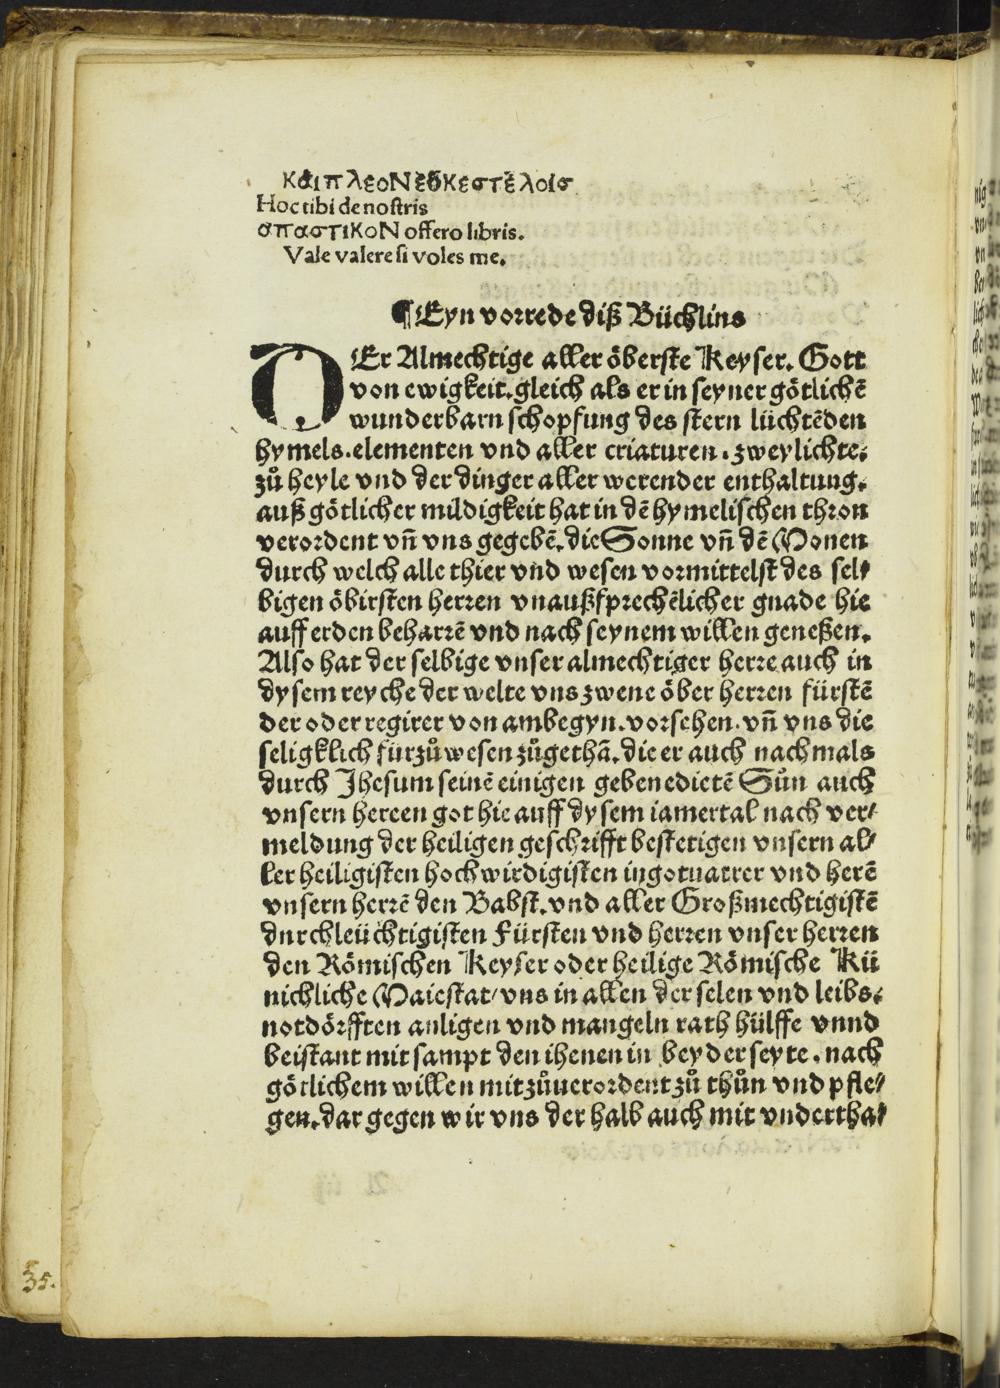 καιπλεον εδκεστελοισ
Hoc tibi de nostris
σπαστικον offero libris.
Vale valere si voles me.
¶Eyn vorrede diß Büchlins
DEr Almechtige aller öberste Keyser. Gott
von ewigkeit.gleich als er in seyner götlichẽ
wunderbarn schopfung des stern lüchtẽden
hymels.elementen vnd aller criaturen.zweylichte.
zů heyle vnd der dinger aller werender enthaltung.
auß götlicher mildigkeit hat in dẽ hymelischen thron
verordent vñ vns gegebẽ.die Sonne vñ dẽ Monen
durch welch alle thier vnd wesen vormittelst des sel⸗
bigen öbirsten herren vnaußsprechẽlicher gnade hie
auff erden beharrẽ vnd nach seynem willen geneßen.
Also hat der selbige vnser almechtiger herre auch in
dysem reyche der welte vns zwene öber herren fürstẽ
der oder regirer von ambegyn.vorsehen.vñ vns die
seligklich fürzůwesen zůgethã.die er auch nachmals
durch Jhesum seinẽ einigen gebenedietẽ Sůn auch
vnsern hereen got hie auff dysem iamertal nach ver⸗
meldung der heiligen geschrifft bestetigen vnsern al⸗
ler heiligisten hochwirdigisten in gotuatrer vnd herẽ
vnsern herrẽ den Babst.vnd aller Großmechtigistẽ
durchleüchtigisten Fürsten vnd herren vnser herren
den Römischen Keyser oder heilige Römische Kü
nichliche Maiestat/vns in allen der selen vnd leibs.
notdörfften anligen vnd mangeln rath hülffe vnnd
beistant mit sampt den ihenen in beyder seyte.nach
götlichem willen mitzůuerordent zů thůn vnd pfle⸗
gen.dar gegen wir vns der halb auch mit vndertha⸗
35.